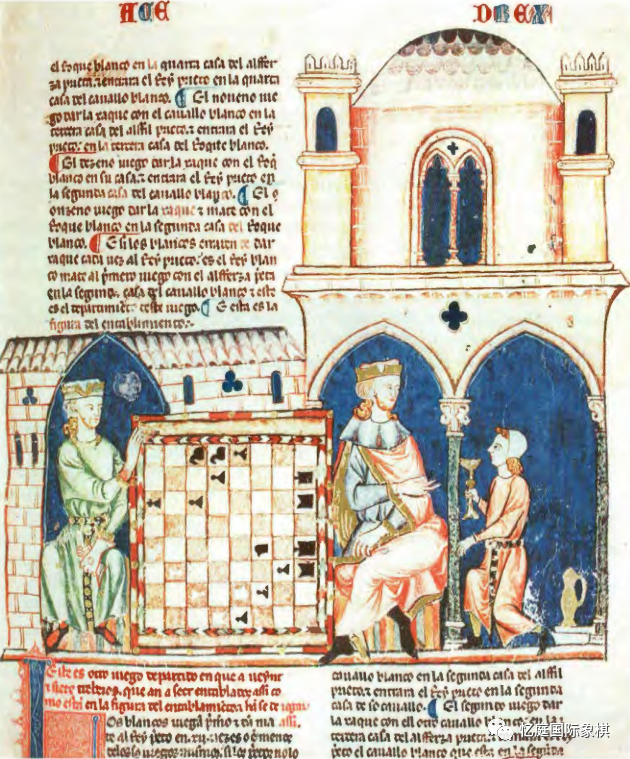 AÇE
DREX
el Roque blanco en la quarta casa del alffer
za prieta. ⁊ entrara el Rey prieto en la quarta
casa del cauallo blanco. El noueno iue
go dar la xaque con el cauallo blanco en la
tercera casa del alffil prieto. ⁊ entrara el Rey
prieto en la tercera casa del Roque blanco.
El dezeno iuego dar la xaque con el Roq
blanco en su casa. ⁊ entrara el Rey prieto en
la segunda casa del cauallo blanco. El
onzeno iuego dar la xaque ⁊ mate con el
Roque blanco en la segunda casa del Roque
blanco. E si los blancos erraren de dar
xaque cada uez al Rey prieto. es el Rey blan
co mate al primero iuego con el alfferza prieta
en la segunda casa del cauallo blanco ⁊ este
es el departimiento deste iuego. E esta es la
figura del entablamiento.
Este es otro iuego departido en que a ueynt
⁊ siete trebeios. que an a seer entablados assi co
mo estan en la figura del entablamiento. ⁊ an se de iogar
Los blancos iuegan primero ⁊ dan mate
al Rey prieto en
cauallo blanco en la segunda casa del alffil
prieto. ⁊ entrara el Rey prieto en la segunda
casa de so cauallo. El segundo iuego dar
la xaque con ell otro cauallo blanco en la
tercera casa del alfferza prieta.
prieto el cauallo blanco que esta en la segunda
亿庭国际象棋